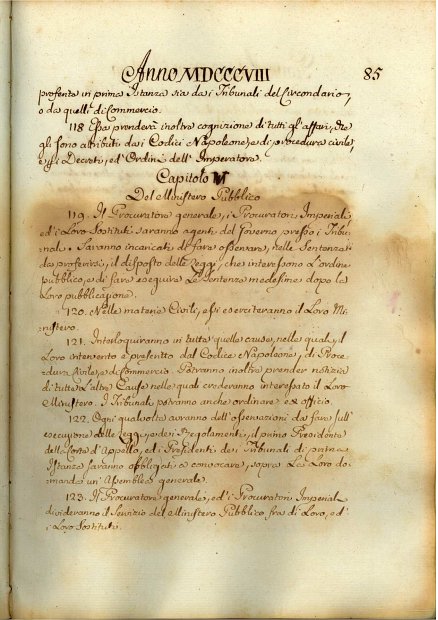 Anno MDCCCVIII 85
proferte in prima Istanza sia da i Tribunali del Circondario,
o da quelli di Commercio.
118 Essa prenderà inoltre cognizione di tutti gl'affari, che
gli sono attributi da i Codici Napoleone, e di procedura civile,
e Decreti, ed Ordini dell'Imperatore.
Capitolo VI
Del Ministero Pubblico
119. Il Procuratore generale, i Procuratori Imperiali,
ed i Loro Sostituti saranno agenti del Governo presso i Tribu-
nali. Saranno incaricati di fare osservare, nelle Sentenze
da proferirsi, il disposto delle Leggi, che interessono l'ordine
pubblico, e di fare eseguire Le Sentenze medesime dopo la
Loro pubblicazione.
120. Nelle materie Civili, essi eserciteranno il Loro Mi-
nistero.
121. Interloquiranno in tutte quelle cause, nelle quali, il
Loro intervento è prescritto dal Codice Napoleone, di Proce-
dura Civile, e di Commercio. Potranno inoltre prender notizia
di tutte L'altre Cause nelle quali crederanno interessato il Loro
Ministero. I Tribunali potranno anche ordinare ex officio.
122. Ogni qual volta avranno dell'osservazioni da fare sull'
esecuzione delle Leggi, e dei Regolamenti, il primo Presidente
della Corte d'Appello, ed i Presidenti dei Tribunali di prima
Istanza saranno obbligati a convocare, sopra La Loro do-
manda un'Assemblea generale.
123. Il Procuratore generale, ed i Procuratori Imperiali
divideranno il Servizio del Ministero Pubblico fra di Loro, ed
i Loro Sostituti.